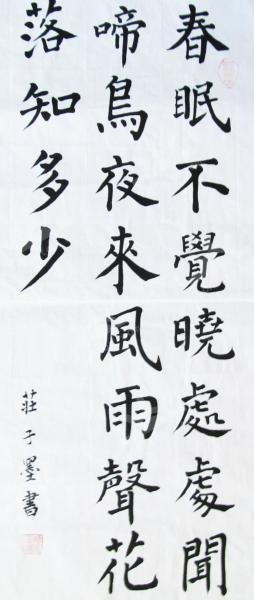 春眠不覺曉處處聞
啼鳥夜來風雨聲花
落知多少
莊子墨書